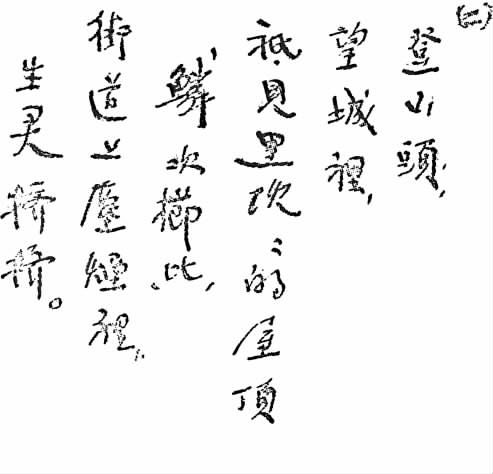 (二)
登山頭,
望城裡,
祇見黑沉〻的屋頂
鱗次櫛比,
街道上塵煙裡,
生灵擠擠。